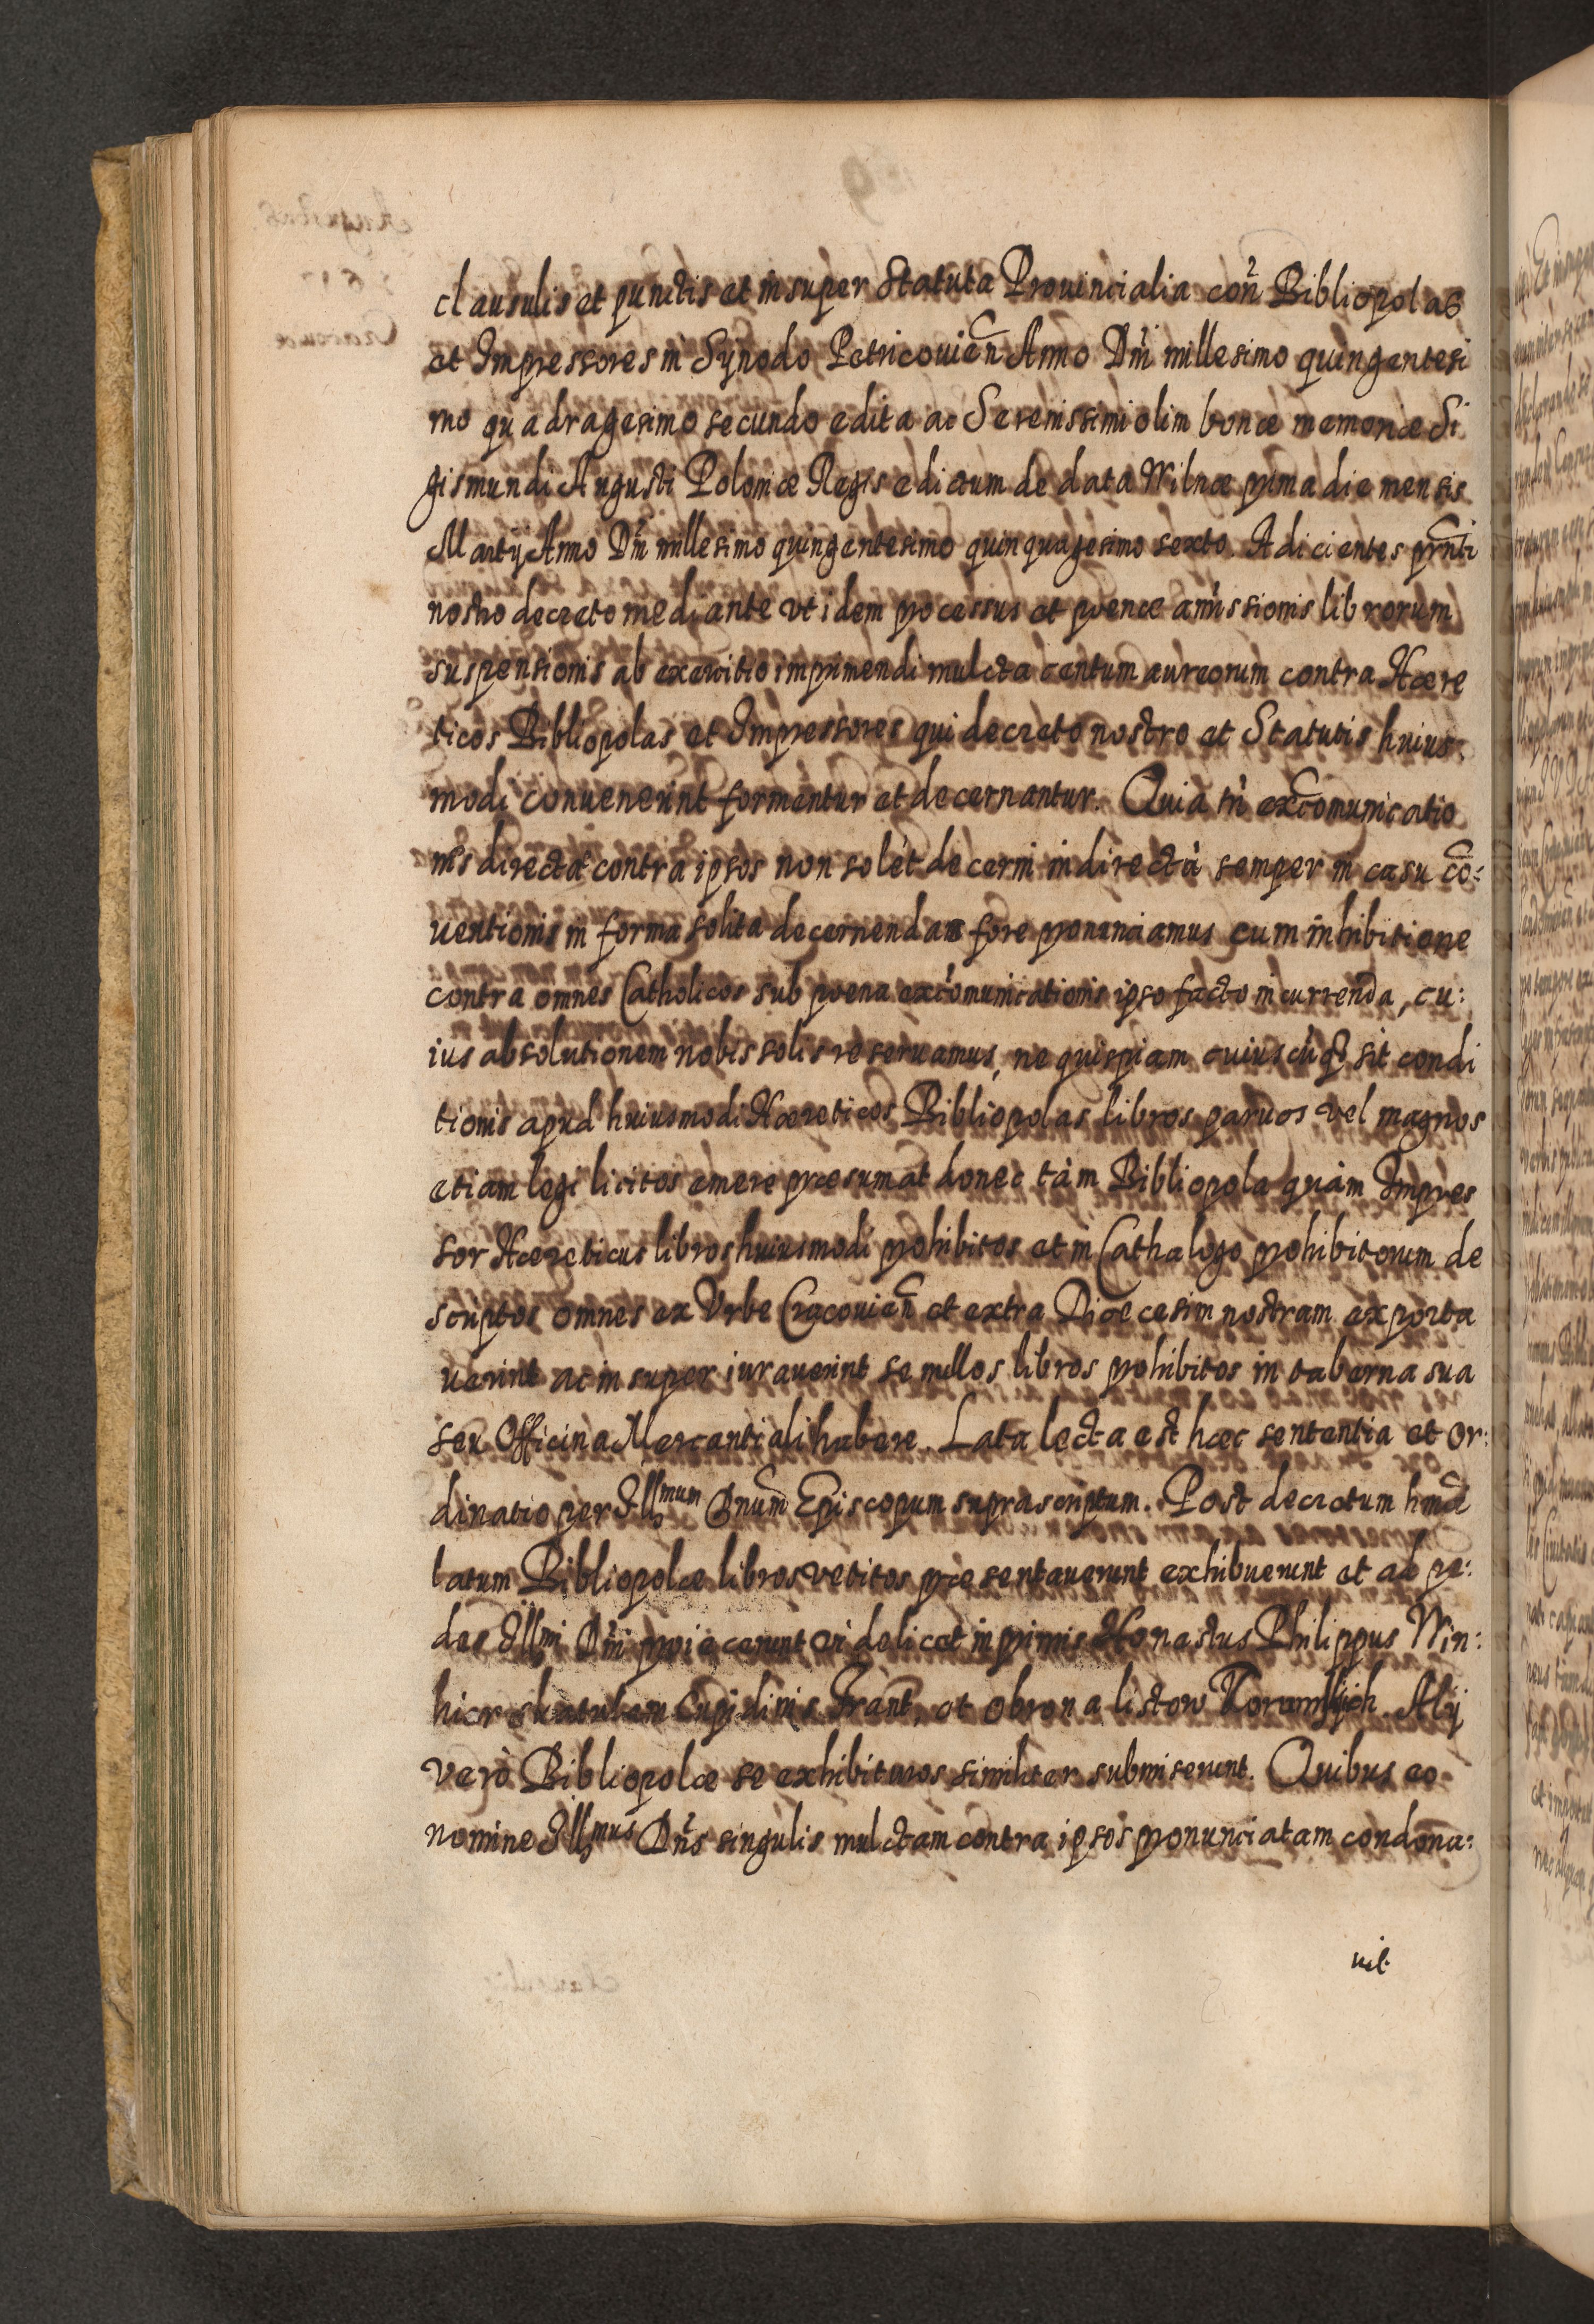 clausulis et punctis et insuper Statuta Prouincialia con̄ Bibliopolas
et Impressores in Synodo Petricouien̄ Anno Dn̄i millesimo quingentesi
mo quadragesimo secundo edita ac Serenissimi olim bonæ memoriæ Si
gismundi Augusti Poloniæ Regis edictum de data Wilnæ prima die mensis
Martij Anno Dn̄i millesimo quingentesimo quinquagesimo sexto. Adicientes prn̄ti
nostro decreto mediante vt idem processus et poenæ amissionis librorum
suspensionis ab exercitio imprimendi mulcta centum aureorum contra Hære
ticos Bibliopolas et Impressores qui decreto nostro et Statutis huius:
modi conuenerint formentur et decernantur. Quia tn̄ excōmunicatio
nis directa contra ipsos non solet decerni indirectà semper in casu cō:
uentionis in forma solita decernendas fore pronunciamus cum inhibitione
contra omnes Catholicos sub poena excōmunicationis ipso facto incurrenda, cu:
ius absolutionem nobis solis reseruamus, ne quispiam cuiuscūq̨ sit condi
tionis apud huiusmodi Hæreticos Bibliopolas libros paruos vel magnos
etiam legi licitos emere præsumat donec tàm Bibliopola quàm Impres
sor Hæreticus libros huiusmodi prohibitos et in Cathalogo prohibitorum de
scriptos omnes ex Vrbe Cracouien̄ et extra Dioecesim nostram exporta
uerint ac insuper iurauerint se nullos libros prohibitos in taberna sua
seu Officina Mercantiali habere. Lata lecta est hæc sententia et or:
dinatio per Illmum Dnum̄ Episcopum suprascriptum. Post decretum hmōi
latum Bibliopolæ libros vetitos præsentauerunt exhibuerunt et ad pe:
des Illmi Dn̄i proiecerunt videlicet inprimis Honestus Philippus Win:
hier Cupidinis et obrona listow Aly
verò Bibliopolæ se exhibituros similiter submiserunt. Quibus eo
nomine Illmus Dn̄s singulis mulctam contra ipsos pronunciatam condona:
uit